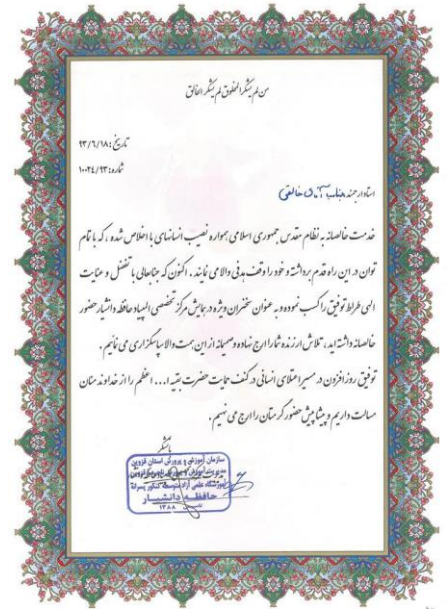 من لم یشکر المخلوق لم یشکر الخالق
تاریخ: ۹۳/۶/۱۸
شماره: ۱۰۰۲۴/۹۳
استاد ارجمند جناب آقای خالقی
خدمت خالصانه به نظام مقدس جمهوری اسلامی همواره نصیب انسانهای با اخلاص شده، که با تمام
توان در این راه قدم برداشته و خود را وقف هدفی والا می نمایند. اکنون که جنابعالی با تفضل و عنایت
الهی طراط توفیق را کسب نموده و به عنوان سخنران ویژه در همایش مرکز تخصصی المپیاد حافظه دانشیار حضور
خالصانه داشته اید، تلاش ارزنده شما را ارج نهاده و صمیمانه از این همت والا سپاسگزاری می نمائیم.
توفیق روز افزون در مسیر اعتلای انسانی در کنف حمایت حضرت بقیه ا... اعظم را از خداوند منان
مسالت داریم و پیشاپیش حضور گرمتان را ارج می نهیم.
باتشکر
سازمان آموزش و پرورش استان قزوین
آموزشگاه علمی آزاد متوسطه کنکور پسرانه
حافظه دانشیار
تاسیس ۱۳۸۸